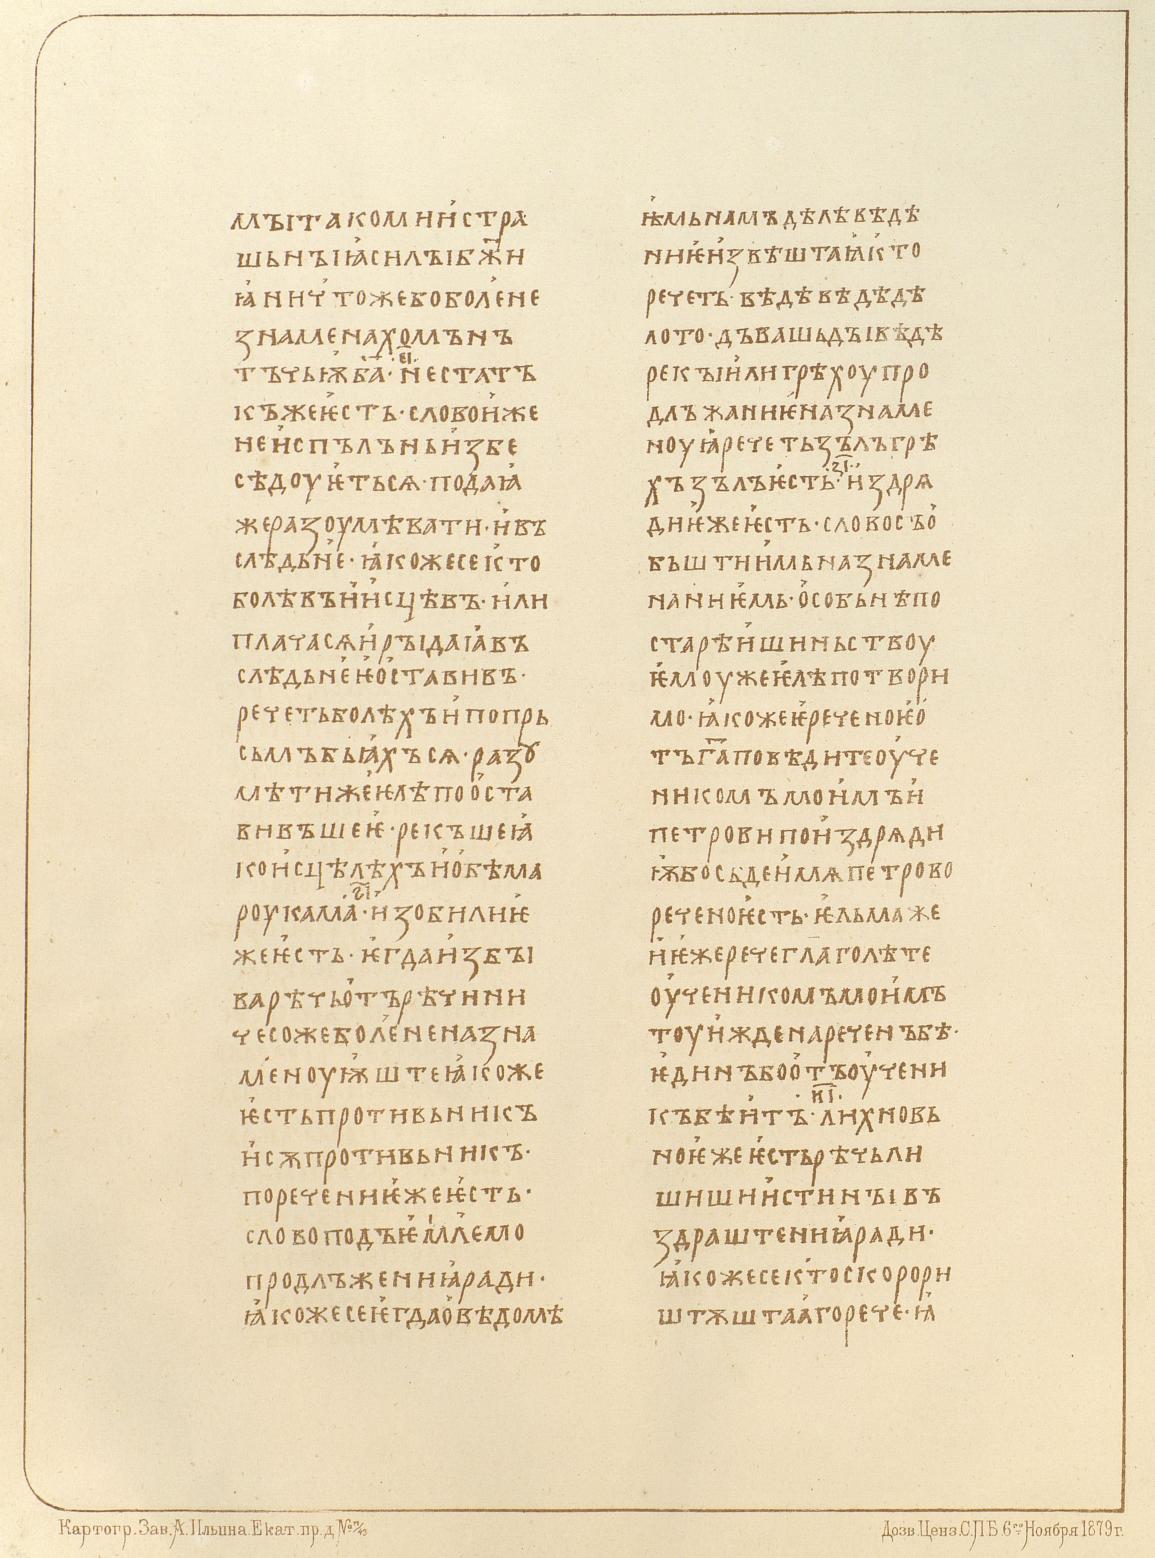 мꙑтакомиистра
шьнꙑꙗсилꙑбж҃и
ꙗничтожебоболене
знаменахомън
тъчьѭба҃· е҃і· нестатъ
къжеѥсть·словоиже
неисплъньизбе
сѣдоуѥтьсѧ·подаꙗ
жеразоумѣвати·ивъ
слѣдьне·ꙗкожесекто
болѣвъиисцѣвъ·или
плачасѧирꙑдаꙗвъ
слѣдьнеѥоставивъ·
речетьболѣхъипопрь
сьмъбьꙗхъсѧ·разꙋ
мѣтижеѥлѣпооста
вивъшеѥ·рекъшеꙗ
коисцѣлѣхъиобѣма
роукама·г҃і·изобилиѥ
жеѥсть·ѥгдаизбꙑ
варѣчьотърѣчини
чесожеболененазна
меноуѭштеꙗкоже
ѥстьпротивьникъ
исѫпротивьникъ·
поречениѥжеѥсть·
словоподъѥмлемо
продлъжениꙗради·
ꙗкожесеѥгдаовѣдомѣ
ѥмьнамъдѣлѣвѣдѣ
ниѥизвѣштаѭкто
речеть·вѣдѣвѣдѣдѣ
лото·дъвашьдꙑвѣдѣ
рекꙑилигрѣхоупро
длъжаниѥназнаме
ноуꙗречетьзълъгрѣ
хъзълъѥсть·з҃і·издрѧ
диѥжеѥсть·словосъо
бьштиимьназнаме
наниѥмь·особьнѣпо
старѣишиньствоу
ѥмоужеѥлѣпотвори
мо·ꙗкожеѥреченоѥо
тъг҃аповѣдитеоуче
никомъмоимъи
петровипоиздрѧди
ѭбосьдеимѧпетрово
реченоѥсть·ѥльмаже
иѥжеречеглаголѣте
оученикомъмоимъ
тоуижденареченъбѣ·
ѥдинъбоотъоучени
къбѣитъ·и҃і·лихновь
ноѥжеѥстьрѣчьли
шишиистинꙑвъ
здраштениꙗради·
ꙗкожесектоскорори
штѫштаагорече·ꙗ
Картогр. Зав. А. Ильина. Екат. пр. д №
Дозв. Ценз. С.П Б. 6го Ноября 1879 г.